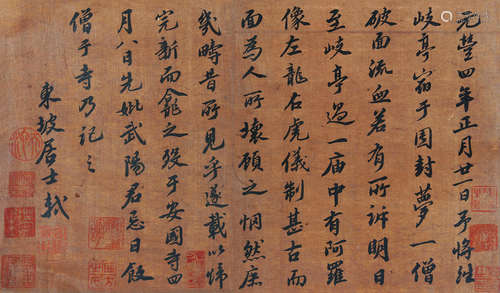 元豐四年正月廿一日予將往
岐亭宿于團封夢一僧
破面流血若有所訴明日
至岐亭過一庙中有阿羅
像左龍右虎儀制甚古而
面為人所壞顧之惘然庶
幾疇昔所見乎遂載以歸
完新而龕之設于安國寺四
月八日先妣武陽君忌日飯
僧于寺乃記之
東坡居士軾